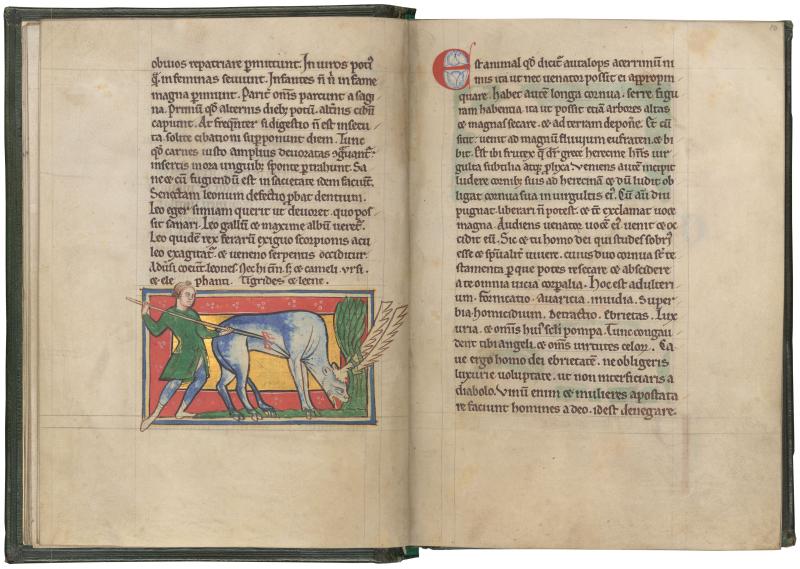 obuios repatriare pmittunt. In uiros poti᷒
q̄ in feminas seuiunt. Infantes n̄ ñ in fame
magna pimunt. Parit om̄s parcunt a sagi
na. Primū qd̓ alternis dieb; potū. altnis cibū
capiunt. Ac freqnter si digestio n̄ est insecu
ta. solite cibationi supponunt diem. Tunc
qd̓ carnes iusto amplius deuoratas
insertis in ora unguib; sponte ptrahunt. Sa
ne ⁊ cū fugiendū est in sacietate idem faciunt.
Senectam leonum defectio pbat dentium.
Leo eger simiam querit ut deuoret. quo pos
sit sanari. Leo gallū ⁊ maxime albū ueret᷒.
Leo quidē rex ferarū exiguo scorpionis acu
leo exagitat᷒. ⁊ ueneno serpentis occiditur.
Aduersi coeunt leones. Nec hi ōm̄. s; ⁊ cameli. ursi.
⁊ ele phanti. Tigrides ⁊ leene.
10
Est animal qd̓ dicit᷒ autalops acerrimū ni
mis ita ut nec uenator possit ei appropin
quare. habet autē longa cornua. serre figu
ram habentia. ita ut possit etiā arbores altas
⁊ magnas secare. ⁊ ad terram depone᷒. Et cū
sitit. uenit ad magnū fluuium eufraten. ⁊ bi
bit. Est ibi frutex q̄ dr̄ grece herecine hn̄s uir
gulta subtilia atq; plixa. Veniens autē incipit
ludere cornib; suis ad herecinā. ⁊ dū ludit ob
ligat cornua sua in uirgultis ei᷒. Cū aū diu
pugnat liberari n̄ potest. ⁊ c̄ exclamat uoce
magna. Audiens uenator uocē ei᷒ uenit ⁊ oc
cidit eū. Sic ⁊ tu homo dei qui studes sobri᷒
esse ⁊ spual᷒r uiuere. cuius duo cornua s᷒ te
stamenta p que potes resecare ⁊ abscidere
a te omnia uicia corpalia. Hoc est adulteri
um. fornicatio. auaricia. inuidia. Super
bia. homicidium. detractio. ebrietas. Lux
uria. ⁊ om̄is hui᷒ scli pompa. Tunc congau
dent tibi angeli. ⁊ om̄s uirtutes celor̄. Ca
ue ergo homo dei ebrietatē. ne obligeris
luxurie uoluptate. ut non interficiaris a
diabolo. Vinū enim ⁊ mulieres apostata
re faciunt homines a deo. id est denegare.